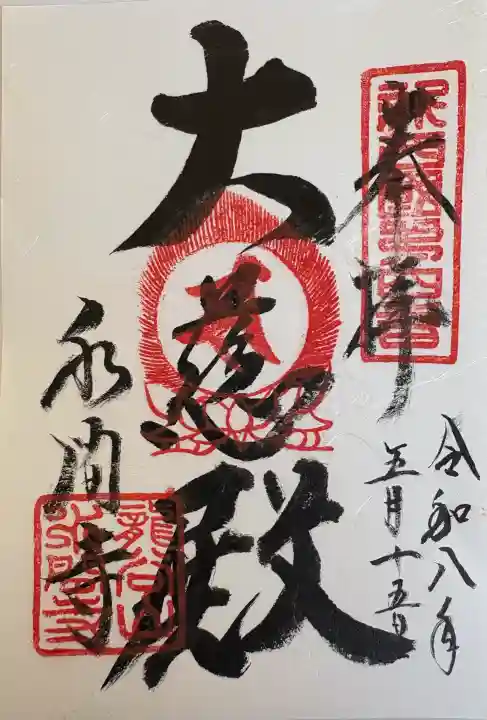 奉拝
令和八年
五月十五日
大慈殿
永間寺